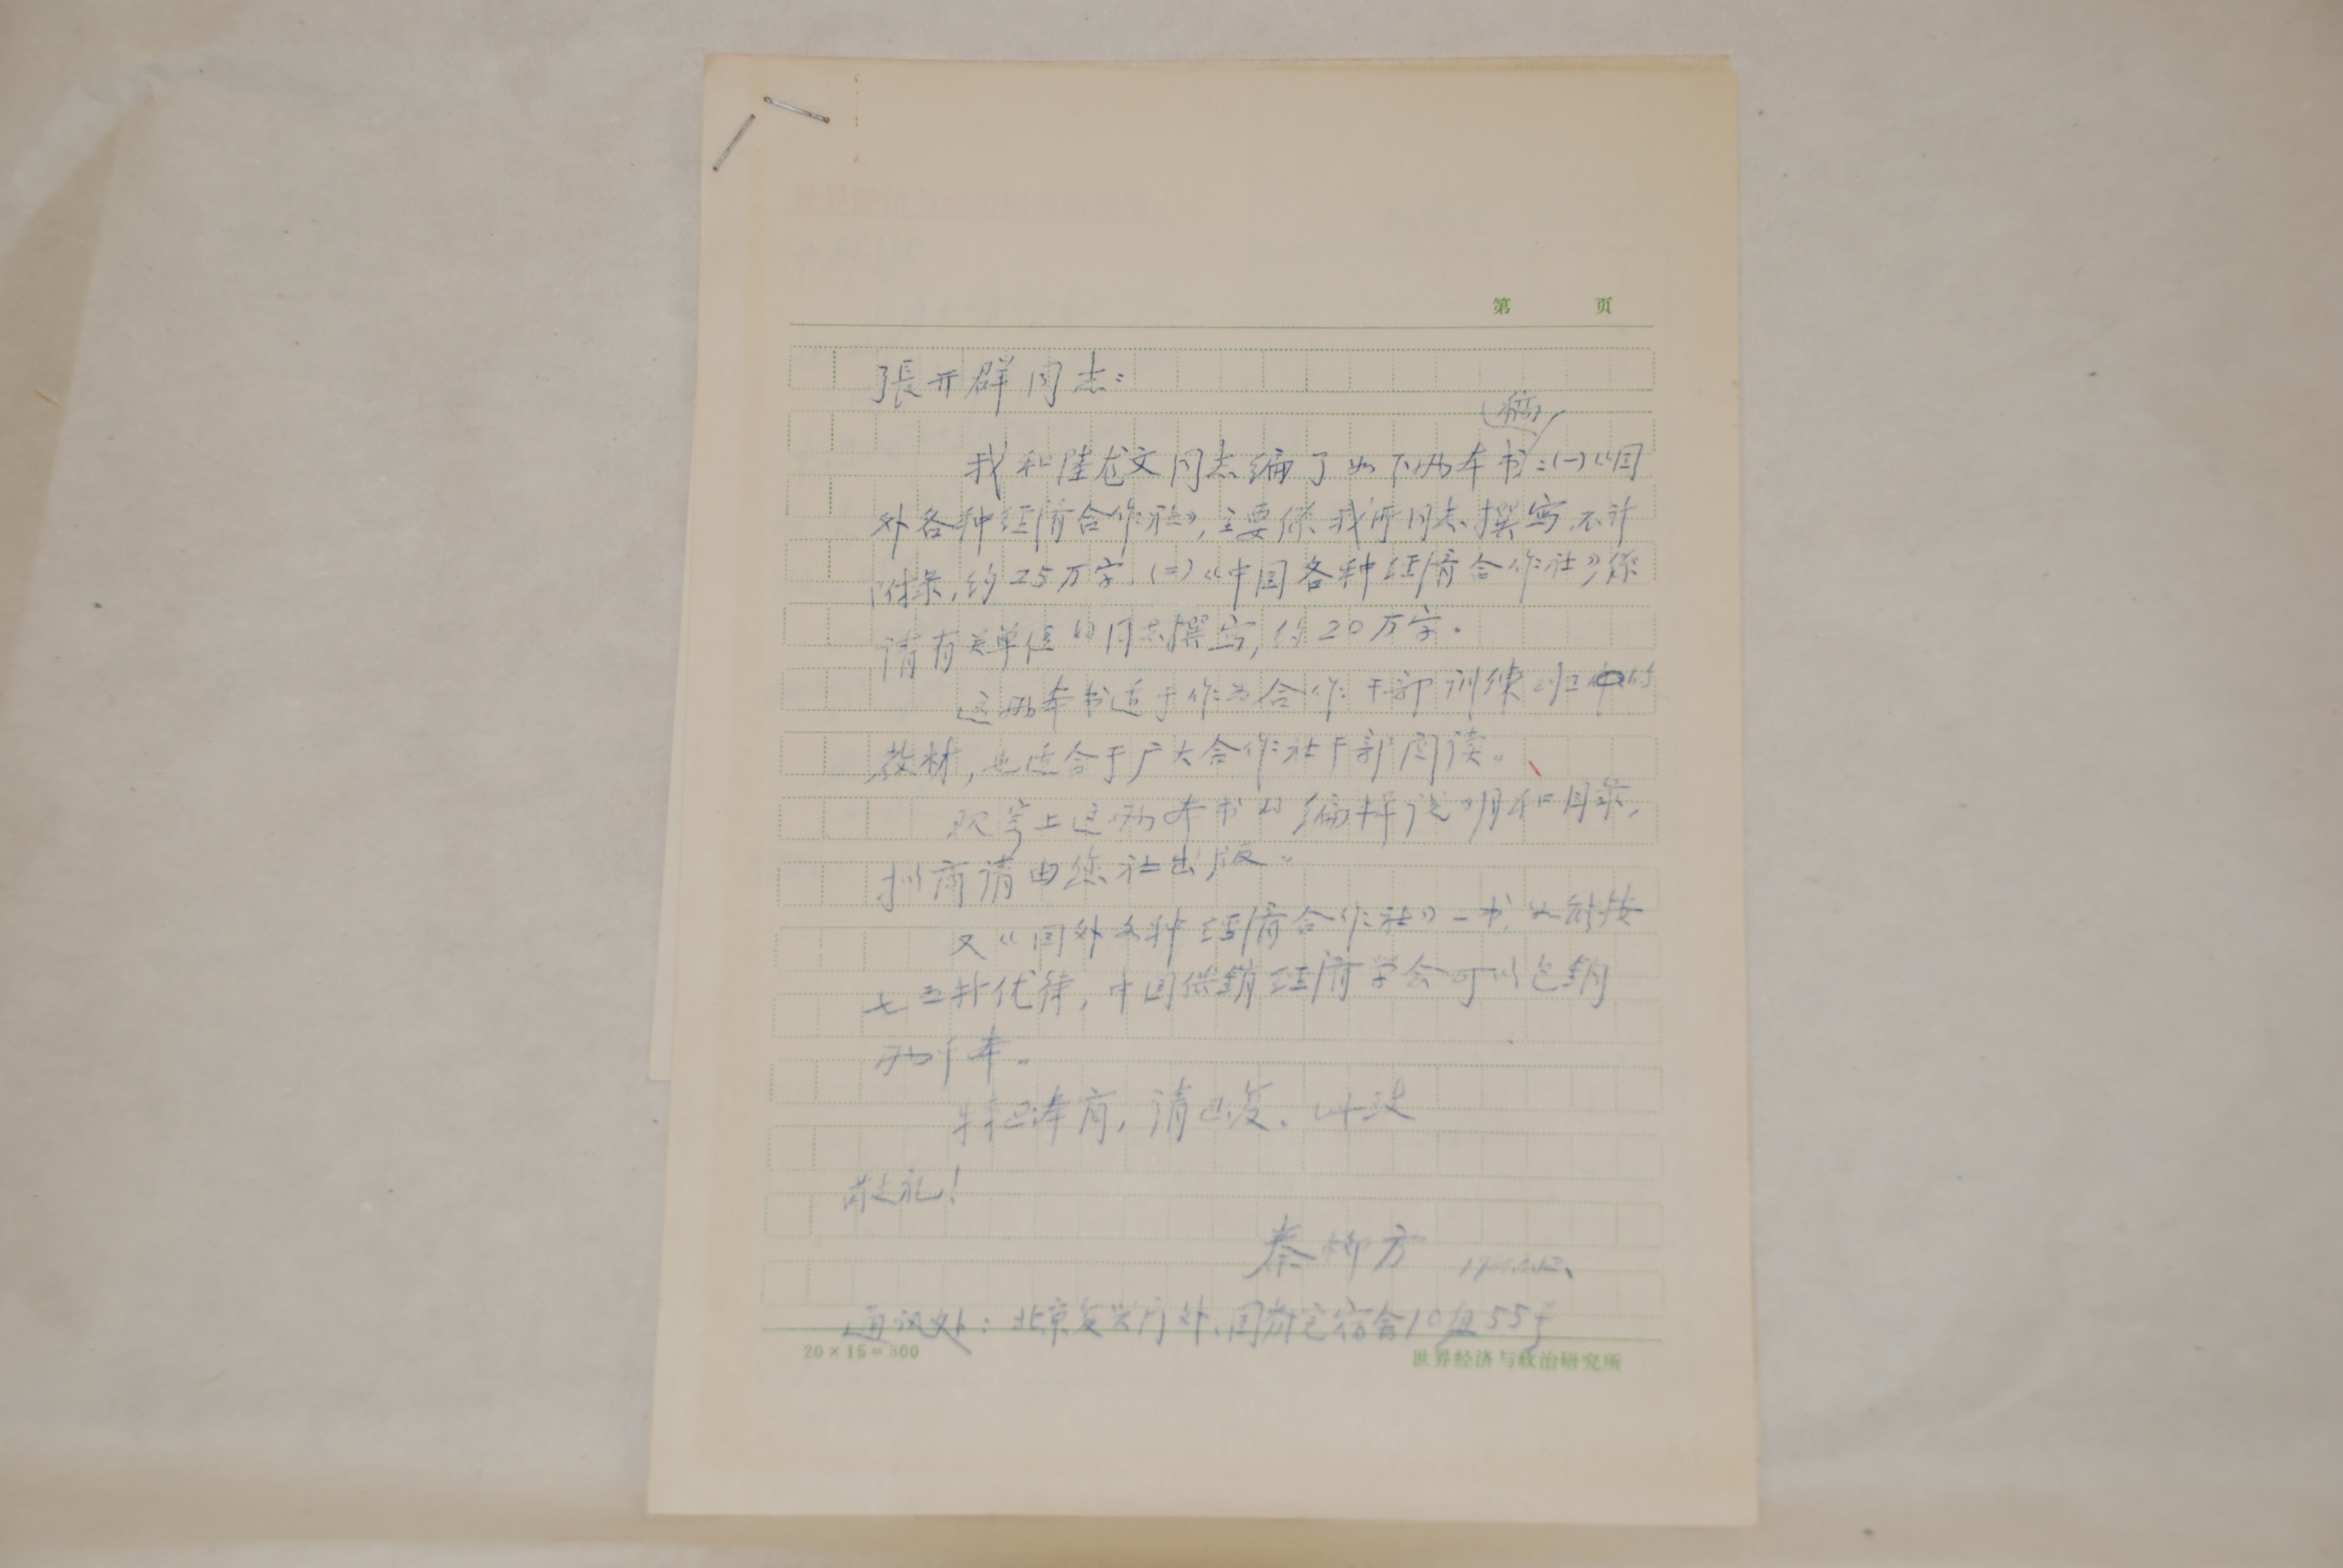 第 页
張开群同志:
(稿)
我和陆龙文同志编了如下两本书:(一)《国
外各种经济合作社》,主要係我所同志撰写,不计
附录,约25万字。(二)《中国各种经济合作社》係
请有关单位的同志撰写,约20万字。
这两本书适于作为合作干部训练班中的
教材,也适合于广大合作社干部阅读。
现寄上这两本书的编辑说明和目录,
拟商请由您社出版。
又《国外各种经济合作社》一书,如能按
七五折优待,中国供销经济学会可以包销
两千本。
特此奉商,请已复。此致
敬礼!
秦柳方
通讯处:北京复兴门外,国务院宿舍10组55号
20×15=300
世界经济与政治研究所